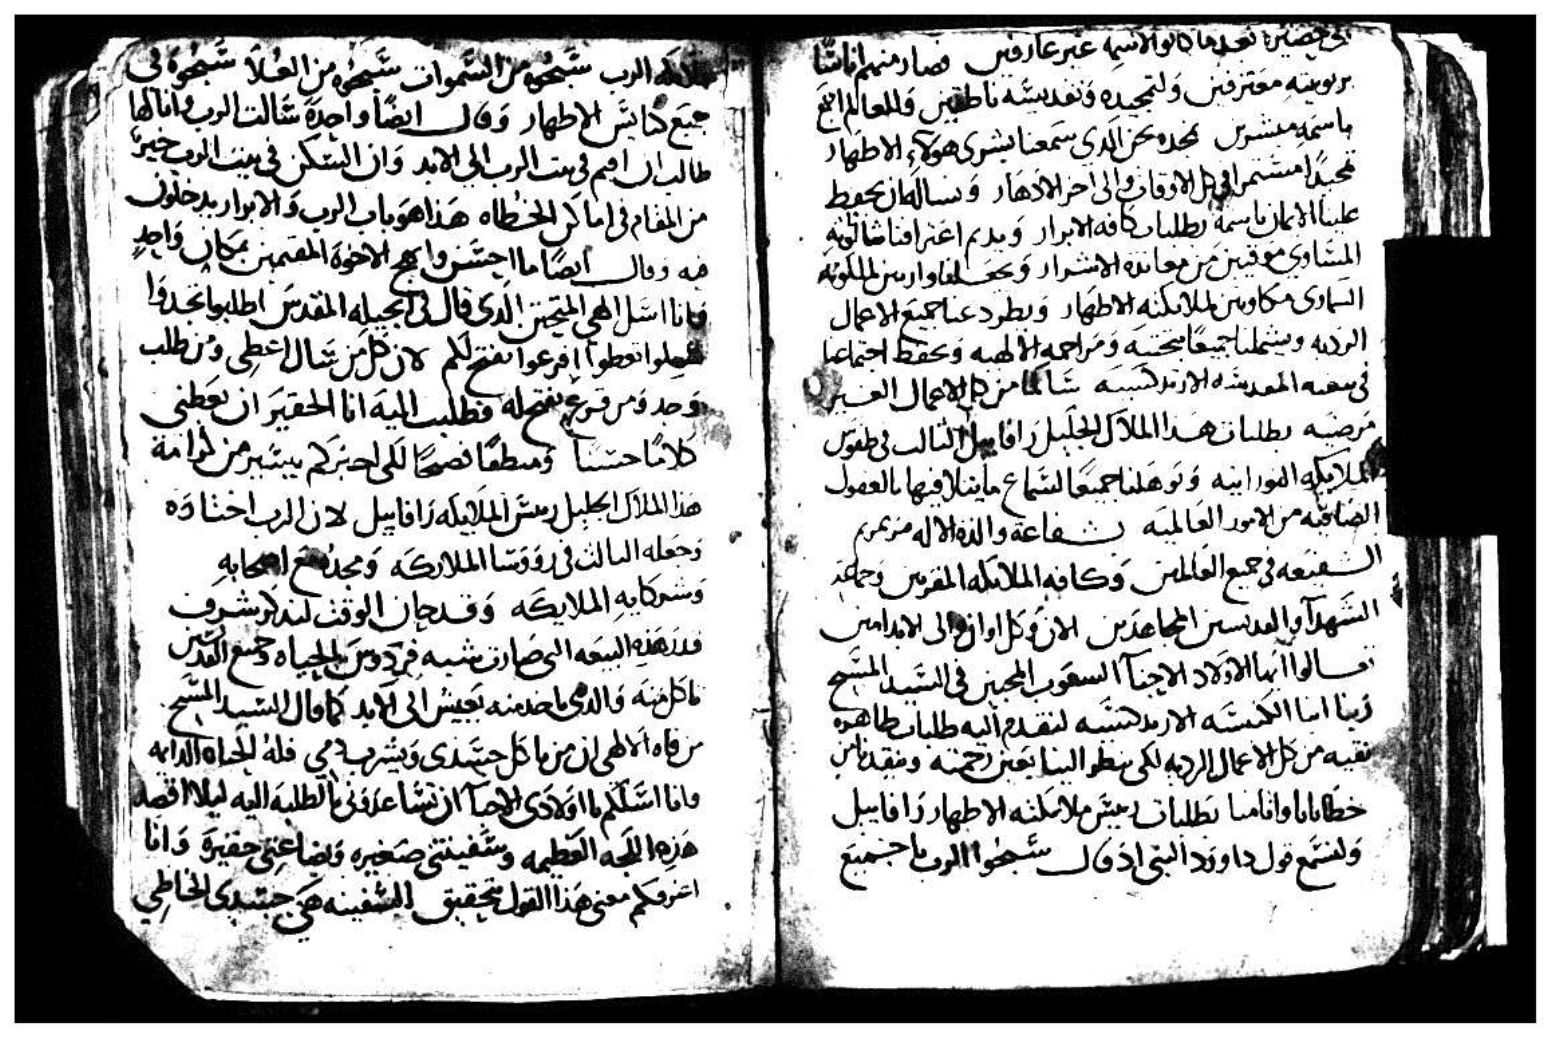 بعدما كانوا لاسمه غير عارفين فصار منهم اناسًا
بربوبيته معترفين ولتمجيده وتقديسه ناطقين وللعالم اجمع
باسمه مبشرين نمجده نحن الذى سمعنا بشرى هولاء الاطهار
تمجيدًا مستمرا فى كل الاوقات والى اخر الادهار ونساله ان يحفظ
علينا الايمان باسمه بطلبات كافه الابرار ويديم اعترافنا بثالوثه
المتساوى موقنين من معانده الاشرار ويجعلنا وارثين لملكوته
السماوى مكاونين لملايكته الاطهار ويطرد عنا جميع الاعمال
الرديه ويشملنا جميعًا بتحننه ومراحمه الالهيه ويحفظ اجتماعنا
فى بيعته المقدسه الارتدكسيه سالمًا من كل الاعمال الغير
مرضيه بطلبات هذا الملاك الجليل رافاييل الثالث فى طقوس
الملايكه النورانيه ويوهلنا جميعًا لسماع ما يتلا فيها بالعقول
الصافيه من الامور العالميه بشفاعة والدة الاله مرتمريم
الشفيعه فى جميع العالمين وكافه الملايكه المقربين وجماعة
الشهدآ والقديسين المجاهدين الان وكل اوان والى الابد امين
تعالوا ايها الاولاد الاحبآ الشعوب المحبين فى السيد المسيح
ربنا ابنا الكنيسه الارتدكسيه لنقدم اليه طلبات طاهره
نقيه من كل الاعمال الرديه لكى ينظر الينا بعين رحمته وينقدنا من
خطايانا واثامنا بطلبات رييس ملايكته الاطهار رافاييل
ولنسمع قول داوود النبى اذ قال سبحوا الرب يا جميع
ملايكة الرب سبحوه من السموات سبحوه من العلا سبحوه فى
جميع كنايس الاطهار وقال ايضًا واحدة سالت الرب وانا لها
طالب ان اقيم فى بيت الرب الى الابد وان السكن فى بيت الرب خيرً
من المقام فى اماكن الخطاه هذا هو باب الرب والابرار يدخلون
فيه وقال ايضًا ما احسن وابهج الاخوة المقيمين بمكان واحدٍ
وانا اسل الهى المتحنن الذى قال فى انجيله المقدس اطلبوا تجدوا
سلوا تعطوا اقرعوا يفتح لكم لان كل من سال اعطى ومن طلب
وجد ومن قرع يفتح له فطلبت اليه انا الحقير ان يعطينى
كلامًا حسنًا ومنطقًا فصحًا لكى اخبركم بيسير من كرامة
هذا الملاك الجليل رييس الملايكه رافاييل لان الرب اختاره
وجعله الثالث فى رووسا الملايكه ومجده مع اصحابه
وشركايه الملايكه وقد حان الوقت لنذكر شرف
قدر هذه البيعه التى صارت شبه فردوس الحياه وجميع القديسين
تاكل منه والذى ياخد منه يعيش الى الابد كما قال السيد المسيح
من فاه الالهى ان من ياكل جسدى ويشرب دمى فله الحياه الدايمه
وانا اسلكم يا اولادى الاحبآ ان تساعدونى بالطلبه اليه ليلا اقصد
هذه اللجه العظيمه وسفينتى صغيره وبضاعتى حقيرة وانا
اعرفكم معنى هذا القول بتحقيق السفينه هى جسدى الخاطى